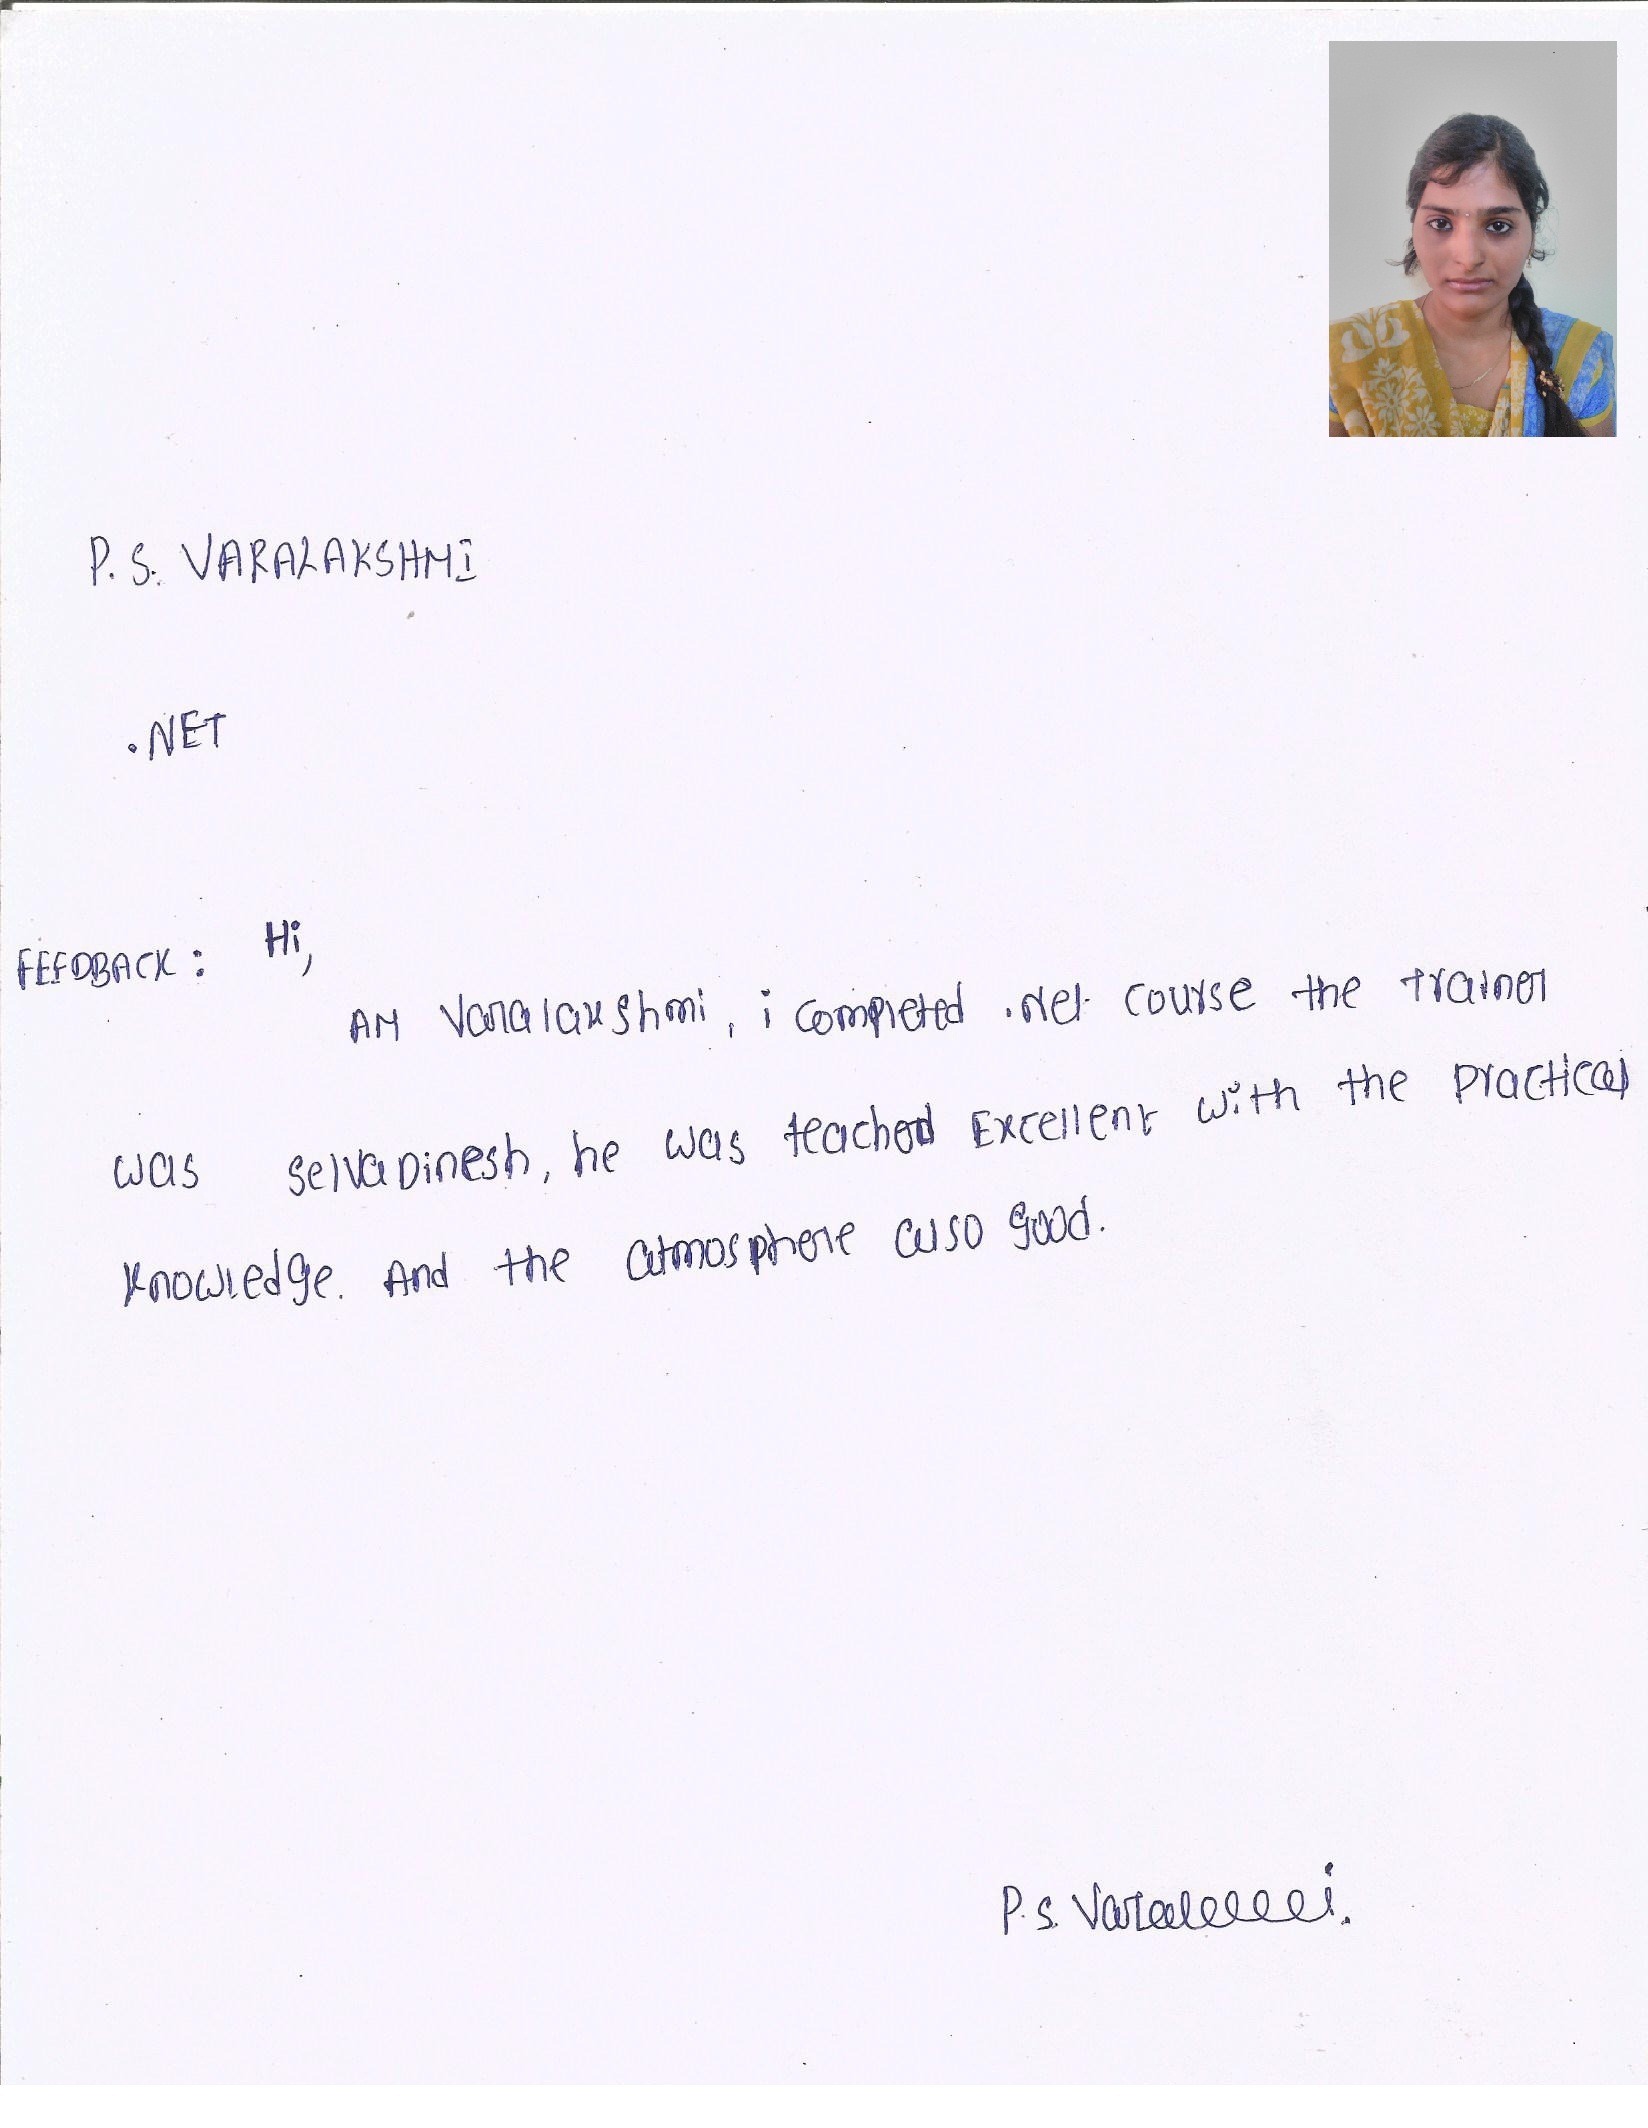 P. S. VARALAKSHMI
.NET
FEEDBACK: Hi,
AM Varalakshmi, i completed .Net course the trainer
was SelvaDinesh, he was teached Excellent with the Practical
Knowledge. And the atmosphere also Good.
P. S. Varal